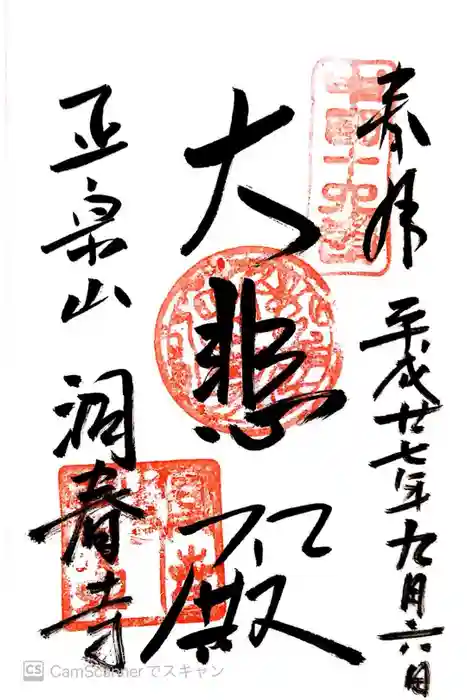 奉拝
平成廿七年九月六日
大悲殿
正宗山
洞春寺
CS CamScanner でスキャン